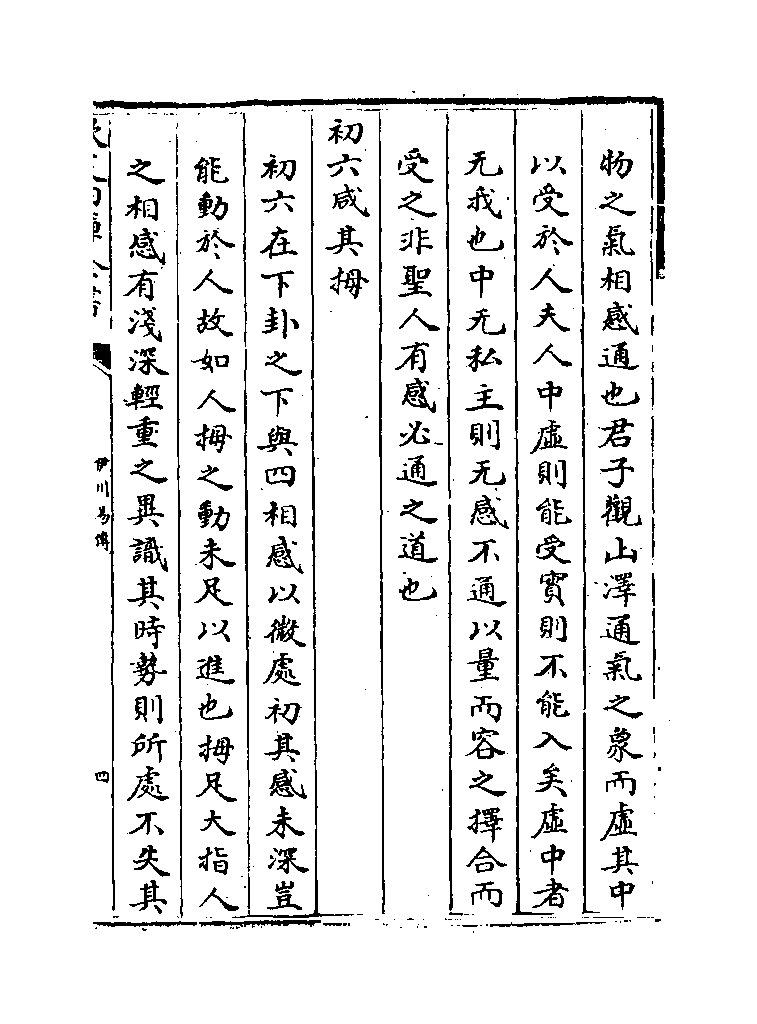 物之氣相感通也君子觀山澤通氣之象而虛其中
以受於人夫人中虛則能受實則不能入矣虛中者
无我也中无私主則无感不通以量而容之擇合而
受之非聖人有感必通之道也
初六咸其拇
初六在下卦之下與四相感以微處初其感未深豈
能動於人故如人拇之動未足以進也拇足大指人
之相感有淺深輕重之異識其時勢則所處不失其
伊川易傳
四